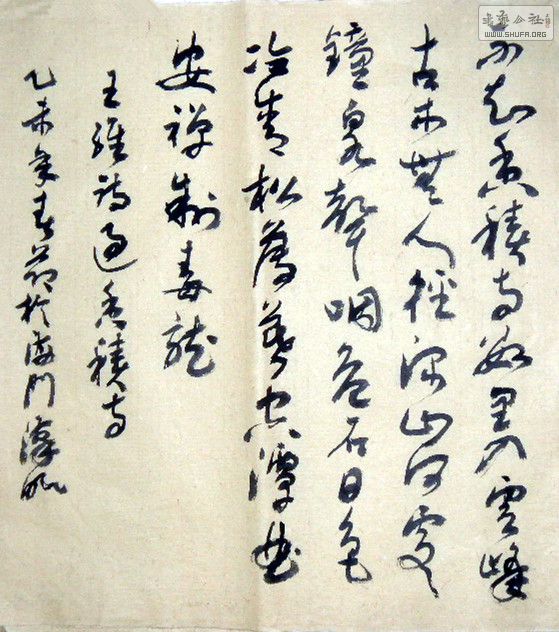 書艺公社
WWW.SHUFA.ORG
不知香積寺数里入雲峰
古木無人徑深山何處
鐘泉聲咽危石日色
冷青松薄暮空潭曲
安禅制毒龍
王維詩過香積寺
乙未年春節於海門